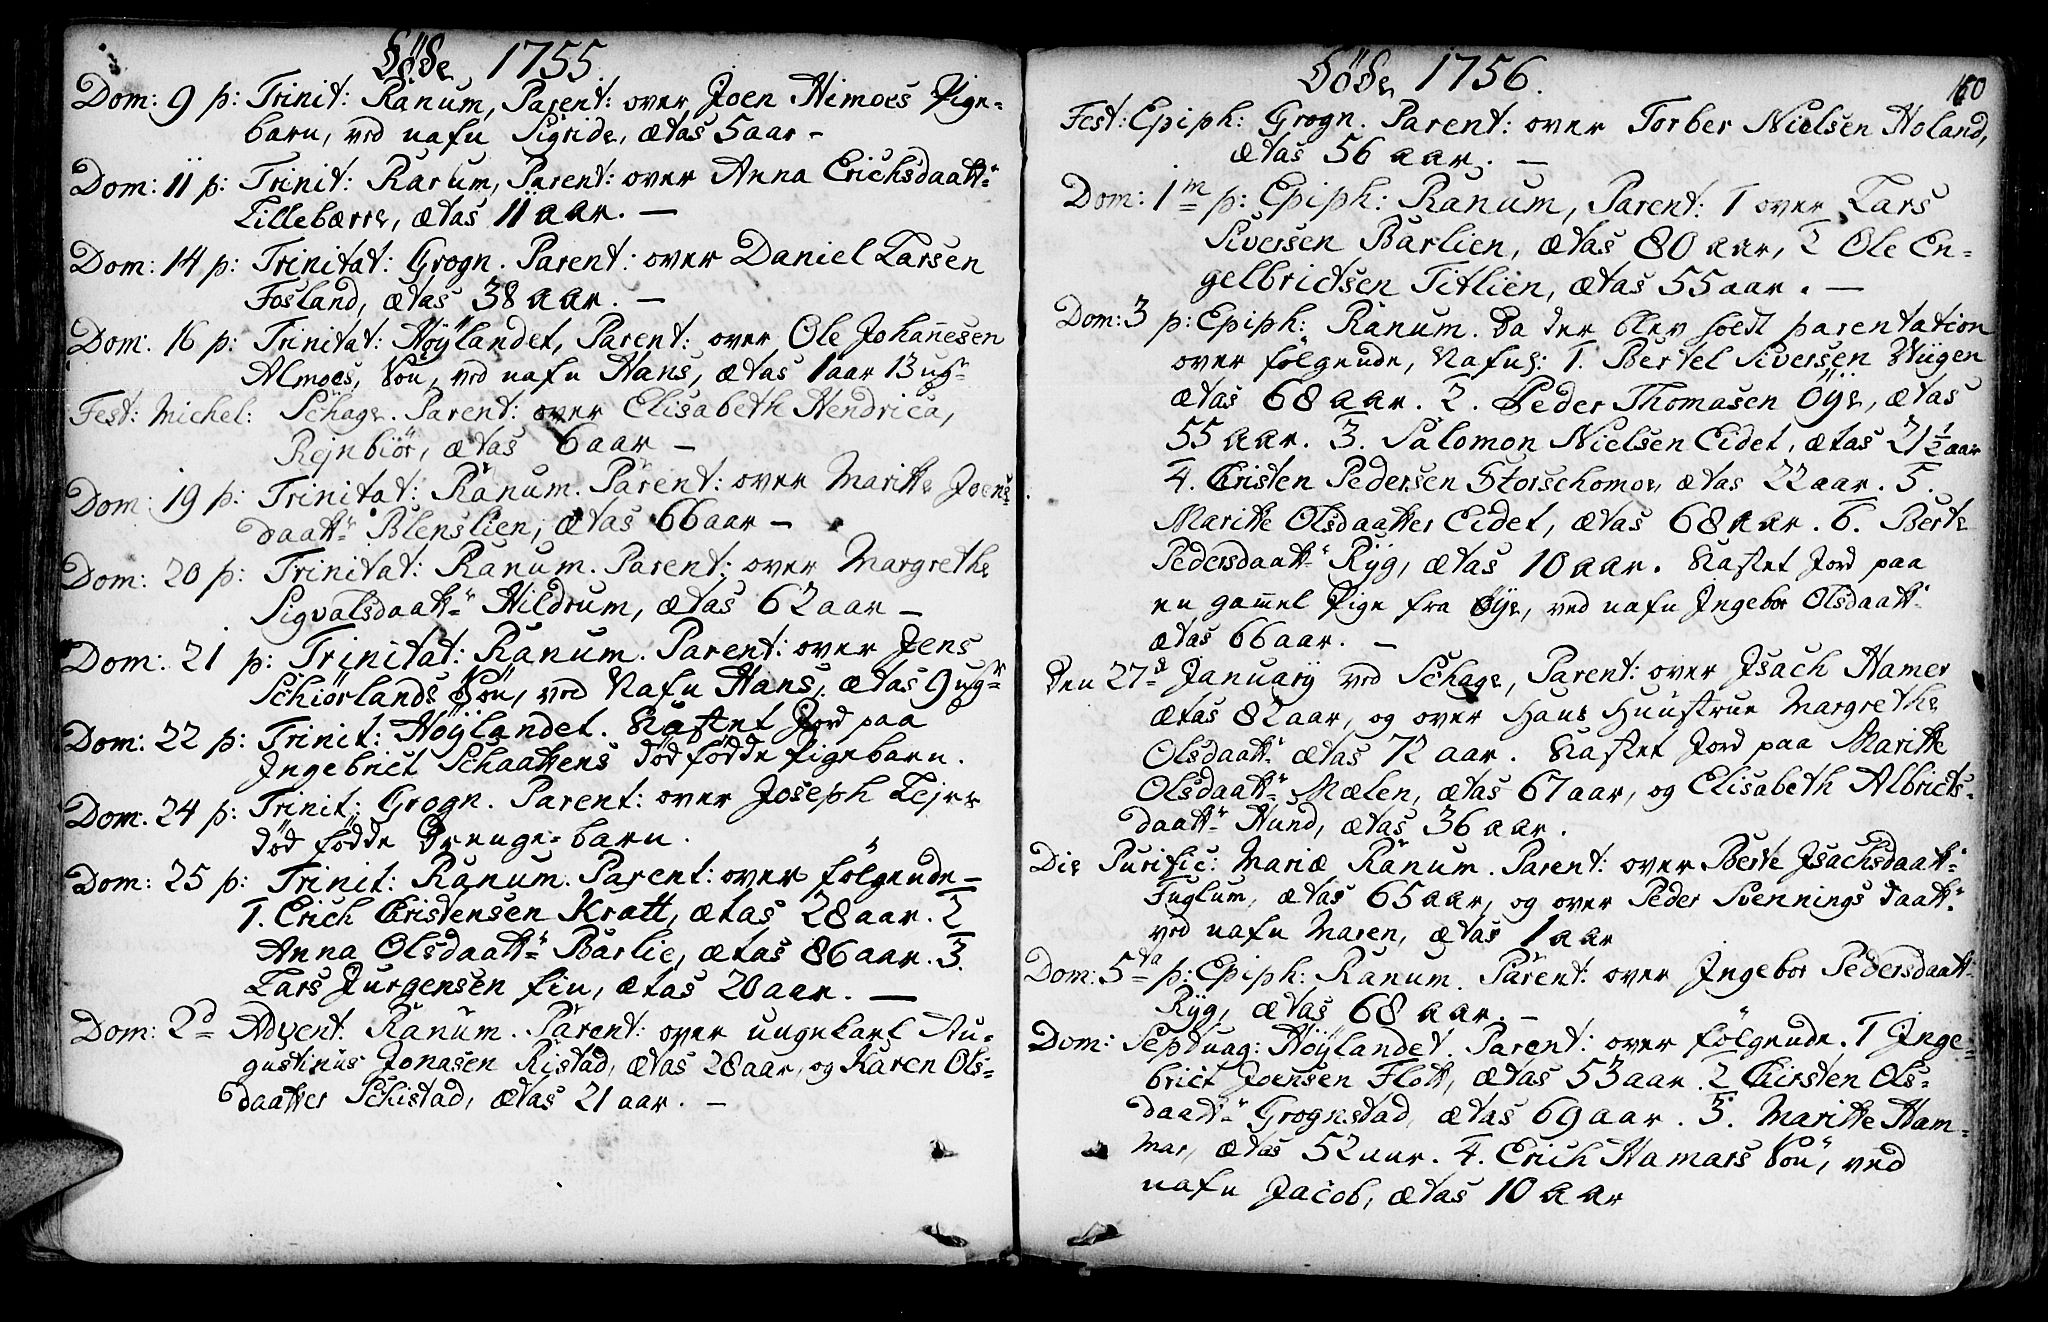 Döde 1755
Dom: 9 p: Trinit: Ranum, Parent: over Joen Himoes Pige-
barn, ved nafn Sigride, ætas 5 aar -
Dom: 11 p: Trinit: Ranum, Parent: over Anna Erichsdaatt:
Lillebærre, ætas 11 aar. -
Dom: 14 p: Trinitat: Grogn. Parent: over Daniel Larsen
Fosland, ætas 38 aar. -
Dom: 16 p: Trinitat: Höÿlandet, Parent: over Ole Johañesen
Almoes, Sön, ved nafn Hans, ætas 1 aar 13 ug:
Fest: Michel: Schage. Parent: over Elisabeth Hendrica,
Rejnbiör, ætas 6 aar -
Dom: 19 p: Trinitat: Ranum. Parent: over Maritte Joens
daatt: Blenslien, ætas 66 aar -
Dom: 20 p: Trinitat: Ranum. Parent: over Margrethe
Sigvalsdaatt: Hildrum, ætas 62 aar -
Dom: 21 p: Trinitat: Ranum. Parent: over Jens
Schiörlands Sön, ved Nafn Hans, ætas 9 ugr
Dom: 22 p: Trinit: Höÿlandet. Kastet Jord paa
Ingebrict Schaattens död födde Pigebarn.
Dom. 24 p: Trinit: Grogn. Parent: over Joseph Lejre
död födde Drenge-barn.
Dom: 25 p: Trinit: Ranum. Parent: over fölgende -
1. Erich Christensen Kratt, ætas 28 aar. 2
Anna Olsdaatt: Barlie, ætas 86 aar. 3.
Lars Jurgensen fin, ætas 20 aar. -
Dom: 2d Advent. Ranum. Parent: over ungekarl Au-
gustinus Jonasen Ristad, ætas 28 aar, og Karen Ols-
daatter Schistad, ætas 21 aar. -
Döde 1756.
160
Fest: Epiph: Grogn. Parent: over Torber Nielsen Holand,
ætas 56 aar. -
Dom: 1m p: Epiph: Ranum, Parent: 1 over Lars
Siversen Barlien, ætas 80 aar, 2 Ole En-
gelbrictsen Titlien, ætas 55 aar. -
Dom: 3 p: Epiph: Ranum. Da der blev holdt parentation
over fölgende, Nafnl: 1. Bertel Siversen Wiigen
ætas 68 aar. 2. Peder Thomasen Öÿe, ætas
55 aar. 3. Salomon Nielsen Eidet, ætas 21 1/2 aar
4. Christen Pedersen Storschomoe, ætas 22 aar. 5.
Maritte Olsdaatter Eidet, ætas 68 aar. 6. Berte
Pedersdaatt: Rÿg, ætas 10 aar. Kastet Jord paa
en gam̃el Pige fra Öÿe, ved nafn Ingebor Olsdaatt:
ætas 66 aar. -
Den 27d Januarÿ ved Schage, Parent: over Isach Hamer
ætas 82 aar, og over hans Huustrue Margrethe
Olsdaatt: ætas 72 aar. Kastet Jord paa Maritte
Olsdaatt: Mælen, ætas 67 aar, og Elisabeth Albricts-
daatt: Hund, ætas 36 aar.
Die Purific: Mariæ Ranum. Parent: over Berte Isachsdaatt:
Fuglum, ætas 65 aar, og over Peder Svennings daatt:
ved nafn Maren, ætas 1 aar
Dom: 5ta p: Epiph: Ranum. Parent: over Ingebor Pedersdaatt:
Rÿg, ætas 68 aar. -
Dom: Septuag: Höÿlandet. Parent: over fölgende. 1 Inge-
brict Joensen Flott, ætas 53 aar. 2 Chirsten Ols-
daatt: Grognstad, ætas 69 aar. 3. Maritte Ham-
mar, ætas 52 aar. 4. Erich Hamars Sön, ved
nafn Jacob, ætas 10 aar